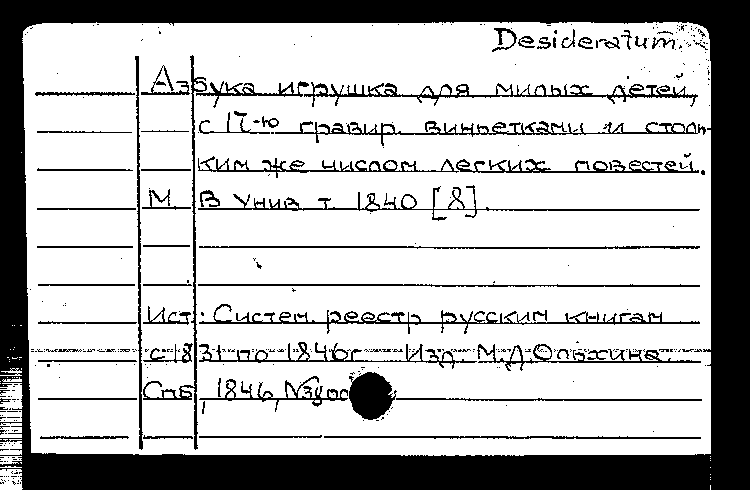 Desideratum.
Азбука игрушка для милых детей,
с 17-ю гравир. виньетками и столь-
ким же числом легких повестей.
М. В Унив т. 1840 [8].
Ист.: Систем. реестр русским книгам
с 1831 по 1846г Изд. М.Д.Ольхина.
Спб, 1846,